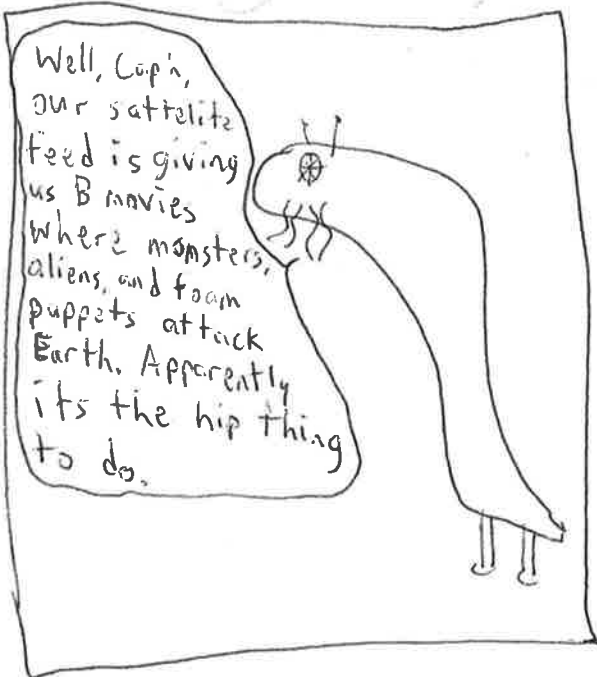 Well, Cap'n,
our sattelite
feed is giving
us B movies
where monsters,
aliens, and foam
puppets attack
Earth. Apparently
its the hip thing
to do.